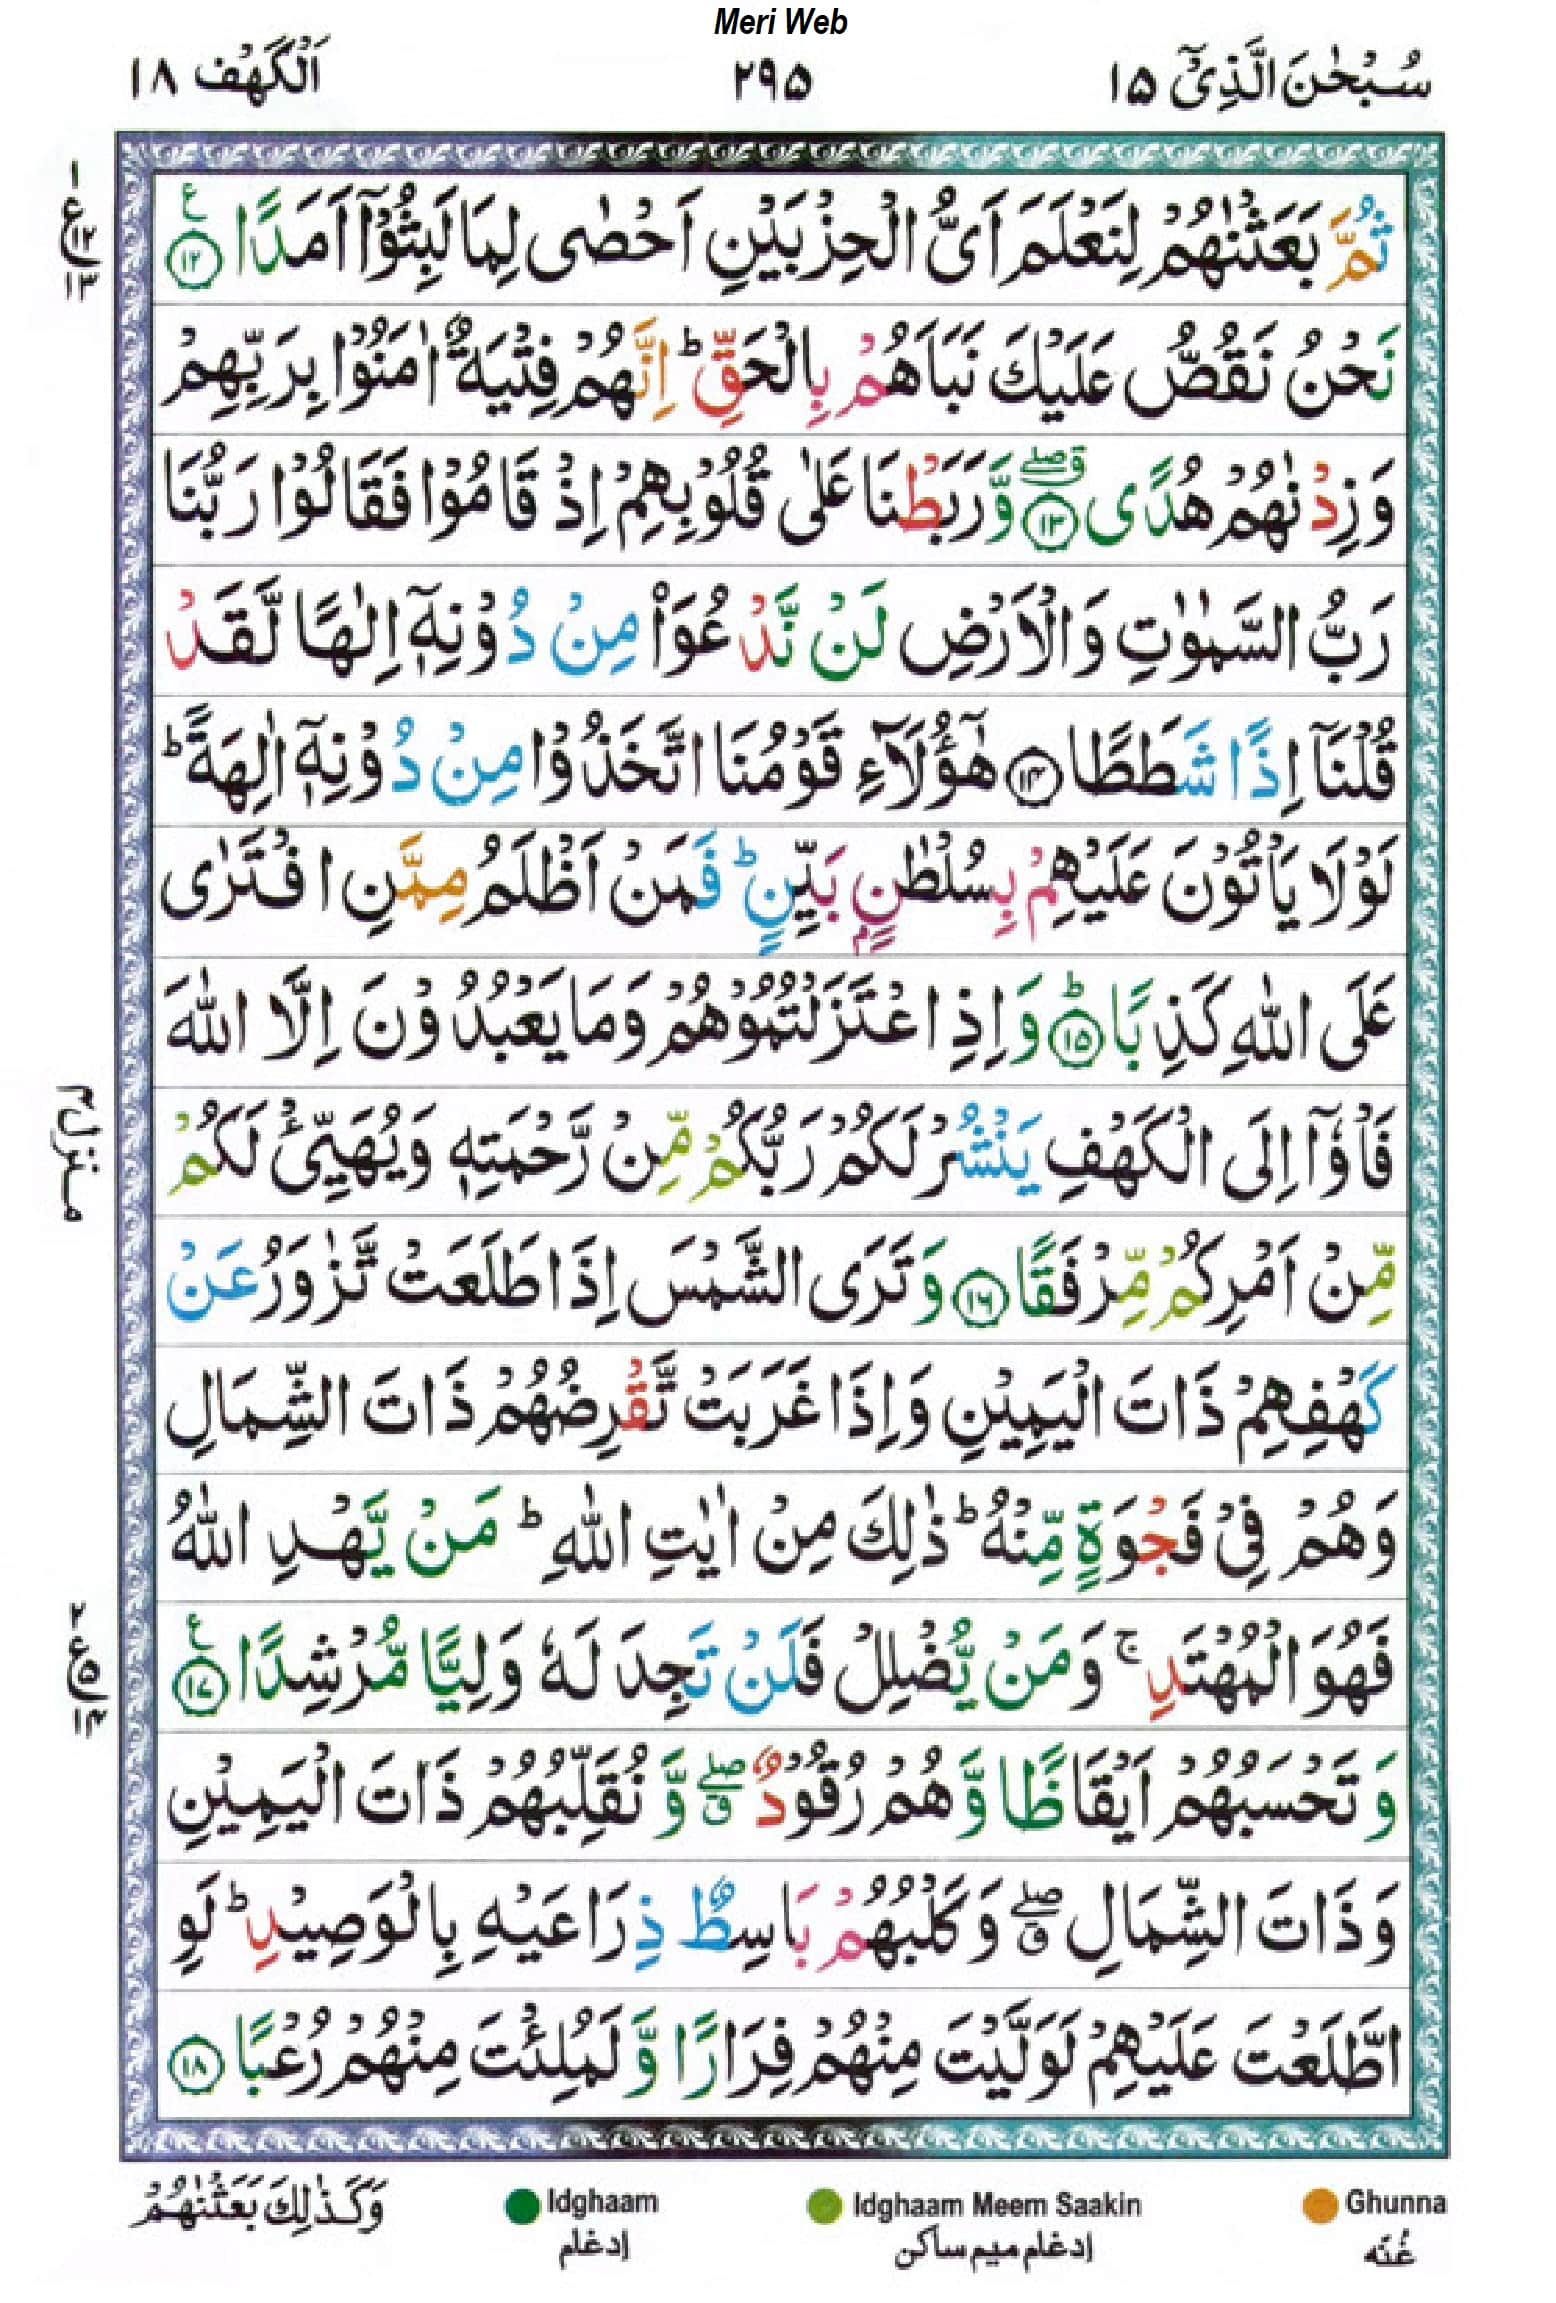 Meri Web
سُبْحٰنَ الَّذِیْۤ ١٥
٢٩٥
اَلْكَهْف ١٨
ثُمَّ بَعَثْنٰهُمْ لِنَعْلَمَ اَیُّ الْحِزْبَیْنِ اَحْصٰى لِمَا لَبِثُوْۤا اَمَدًا ۧ۝۱۲
١ ع ١٢ ١٣
نَحْنُ نَقُصُّ عَلَیْكَ نَبَاَهُمْ بِالْحَقِّ ؕ اِنَّهُمْ فِتْیَةٌ اٰمَنُوْا بِرَبِّهِمْ
وَزِدْنٰهُمْ هُدًى ۝۱۳ ۖق وَّرَبَطْنَا عَلٰى قُلُوْبِهِمْ اِذْ قَامُوْا فَقَالُوْا رَبُّنَا
رَبُّ السَّمٰوٰتِ وَالْاَرْضِ لَنْ نَّدْعُوَا۠ مِنْ دُوْنِهٖۤ اِلٰهًا لَّقَدْ
قُلْنَاۤ اِذًا شَطَطًا ۝۱۴ هٰۤؤُلَآءِ قَوْمُنَا اتَّخَذُوْا مِنْ دُوْنِهٖۤ اٰلِهَةً ؕ
لَوْلَا یَاْتُوْنَ عَلَیْهِمْ بِسُلْطٰنٍۭ بَیِّنٍ ؕ فَمَنْ اَظْلَمُ مِمَّنِ افْتَرٰى
عَلَى اللّٰهِ كَذِبًا ؕ۝۱۵ وَاِذِ اعْتَزَلْتُمُوْهُمْ وَمَا یَعْبُدُوْنَ اِلَّا اللّٰهَ
فَاْوٗۤا اِلَى الْكَهْفِ یَنْشُرْ لَكُمْ رَبُّكُمْ مِّنْ رَّحْمَتِهٖ وَیُهَیِّئْ لَكُمْ
منزل ٤
مِّنْ اَمْرِكُمْ مِّرْفَقًا ۝۱۶ وَتَرَى الشَّمْسَ اِذَا طَلَعَتْ تَّزٰوَرُ عَنْ
كَهْفِهِمْ ذَاتَ الْیَمِیْنِ وَاِذَا غَرَبَتْ تَّقْرِضُهُمْ ذَاتَ الشِّمَالِ
وَهُمْ فِیْ فَجْوَةٍ مِّنْهُ ؕ ذٰلِكَ مِنْ اٰیٰتِ اللّٰهِ ؕ مَنْ یَّهْدِ اللّٰهُ
فَهُوَ الْمُهْتَدِ ۚ وَمَنْ یُّضْلِلْ فَلَنْ تَجِدَ لَهٗ وَلِیًّا مُّرْشِدًا ۧ۝۱۷
٢ ع ٥ ١٤
وَتَحْسَبُهُمْ اَیْقَاظًا وَّهُمْ رُقُوْدٌ ۖق وَّنُقَلِّبُهُمْ ذَاتَ الْیَمِیْنِ
وَذَاتَ الشِّمَالِ ۖق وَكَلْبُهُمْ بَاسِطٌ ذِرَاعَیْهِ بِالْوَصِیْدِ ؕ لَوِ
اطَّلَعْتَ عَلَیْهِمْ لَوَلَّیْتَ مِنْهُمْ فِرَارًا وَّلَمُلِئْتَ مِنْهُمْ رُعْبًا ۝۱۸
وَكَذٰلِكَ بَعَثْنٰهُمْ
Idghaam
ادغام
Idghaam Meem Saakin
ادغام میم ساکن
Ghunna
غُنّه